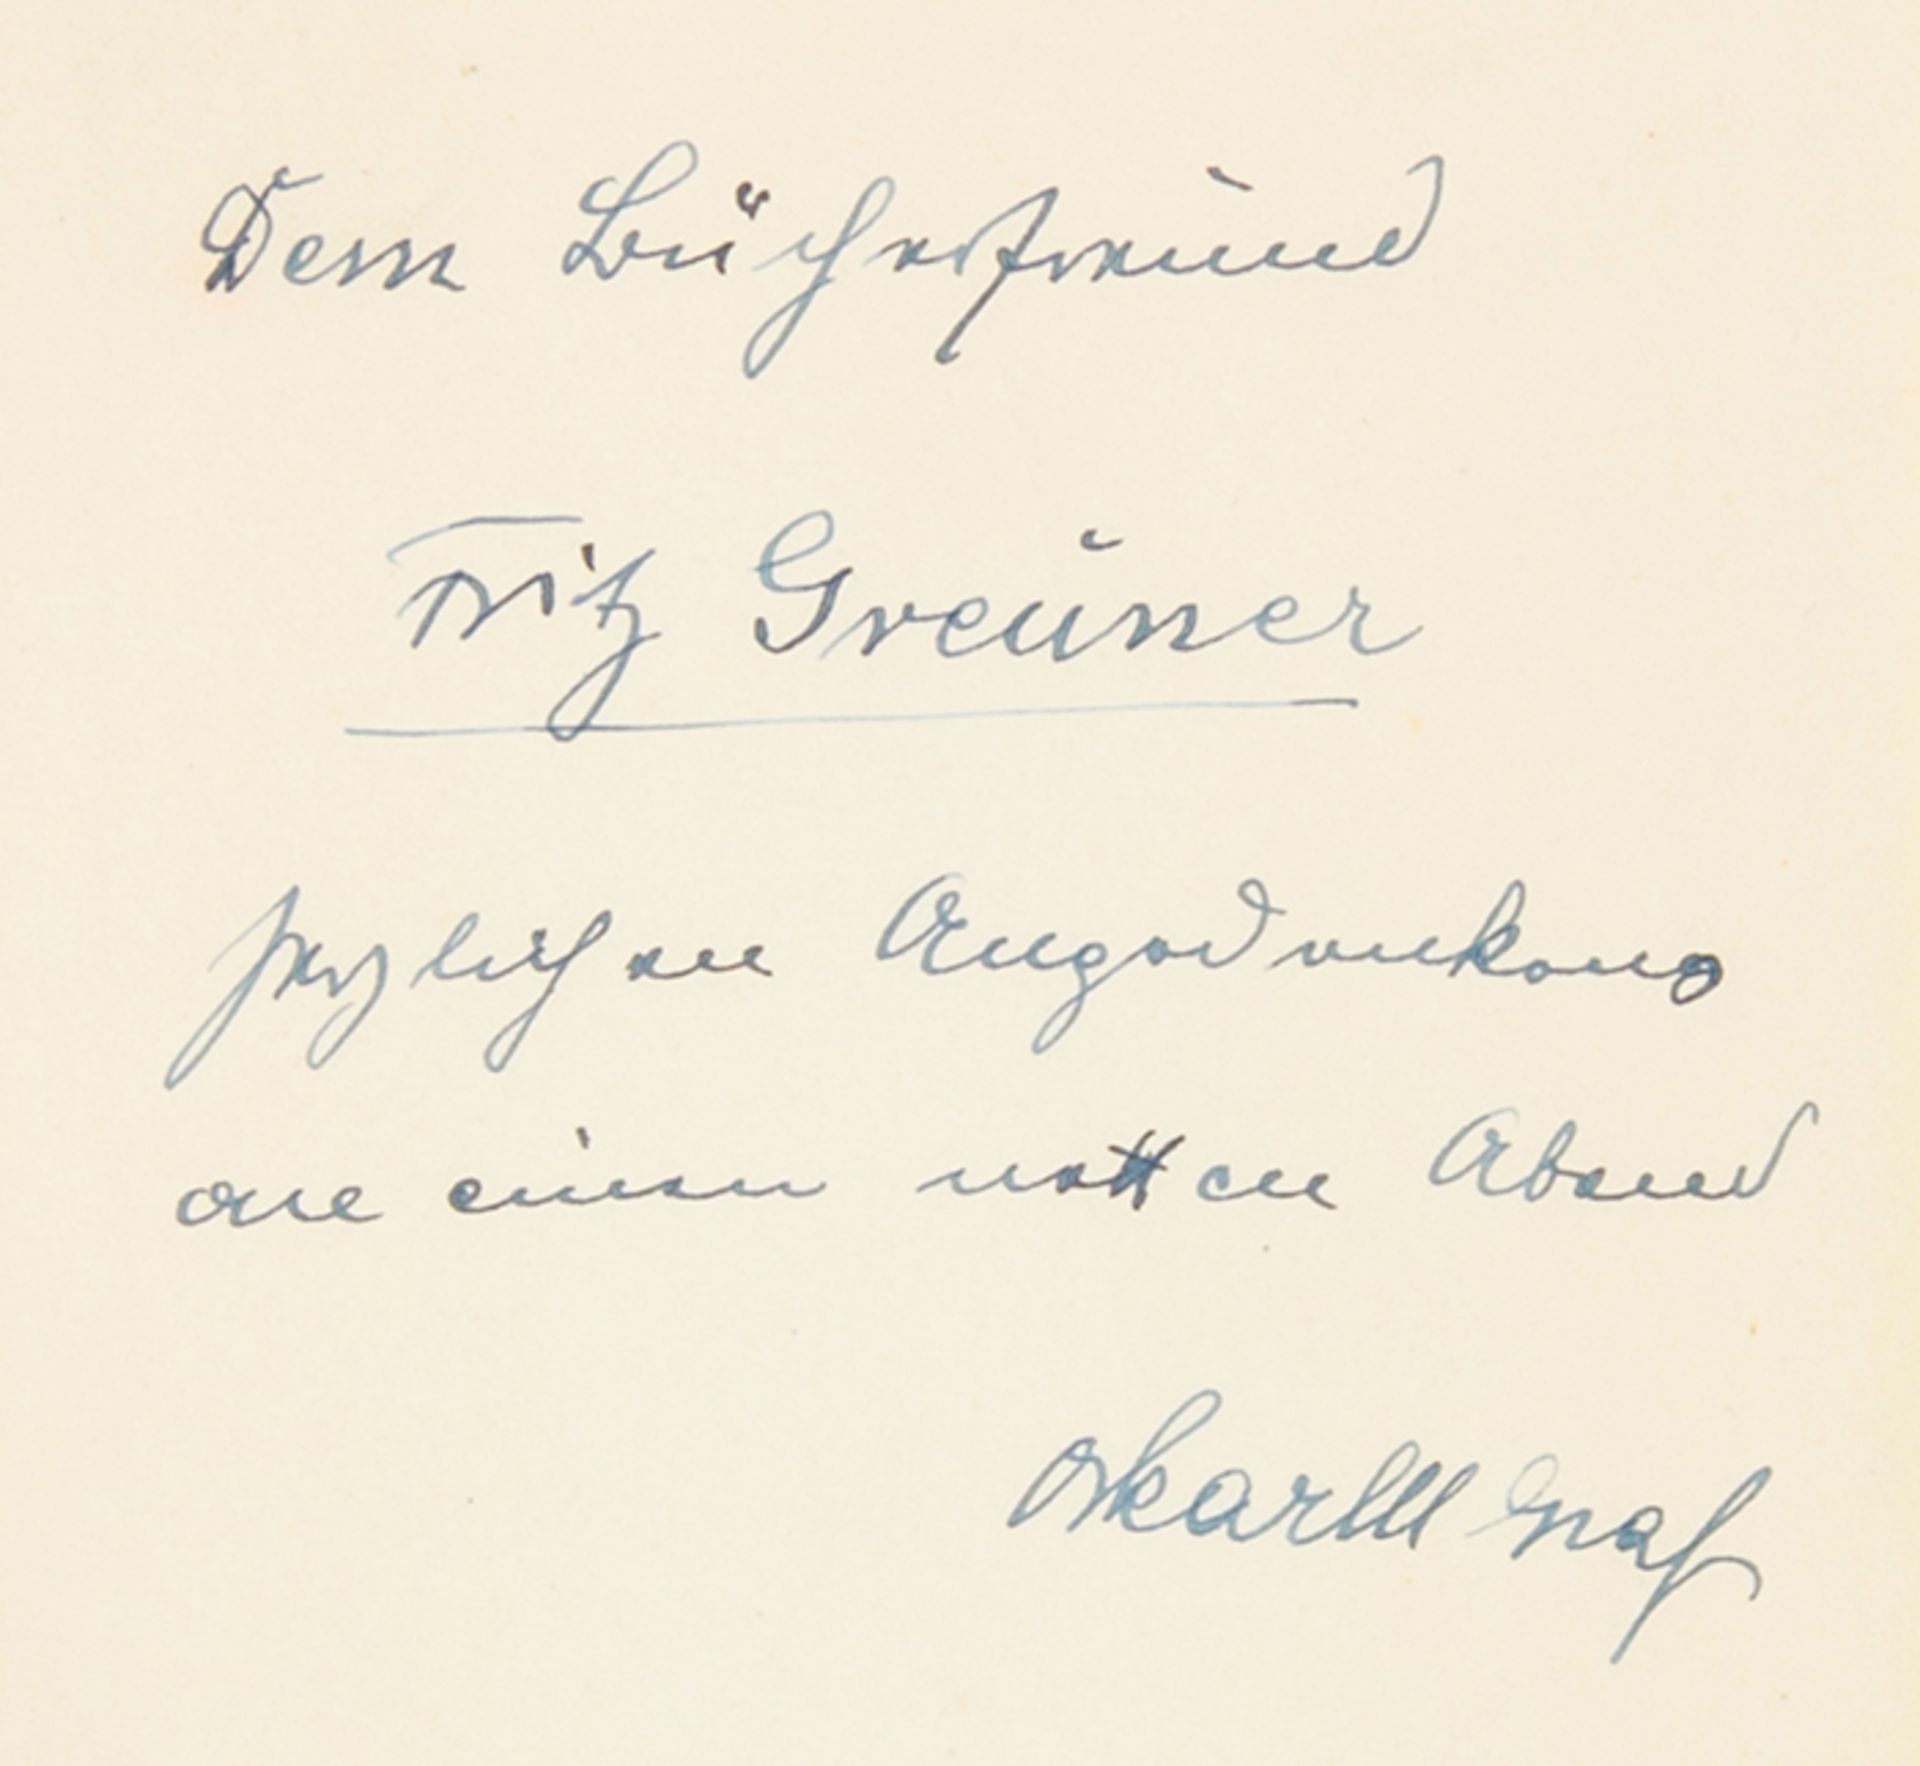 Dem Bücherfreund
Fritz Greuner
herzlichen Angedenkens
an einen netten Abend
Oskar M Graf